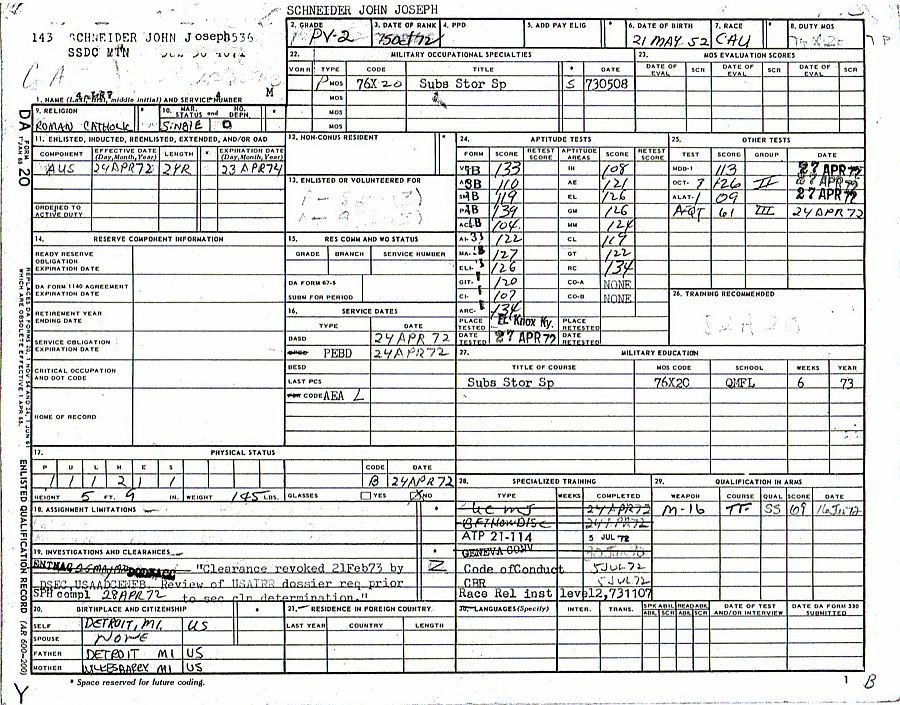 SCHNEIDER JOHN JOSEPH
143 SCHNEIDER JOHN Joseph 536
SSDC MTN
G A
M
1. NAME (Last, first, middle initial) AND SERVICE NUMBER
2. GRADE
PV-2
3. DATE OF RANK
4. PPD
5. ADD PAY ELIG
*
6. DATE OF BIRTH
21 MAY 52
7. RACE
CAU
*
8. DUTY MOS
22. MILITARY OCCUPATIONAL SPECIALTIES
VORR TYPE CODE TITLE * DATE
P MOS 76X20 Subs Stor Sp S 730508
MOS
MOS
MOS
23. MOS EVALUATION SCORES
DATE OF EVAL SCR DATE OF EVAL SCR DATE OF EVAL SCR
9. RELIGION *
ROMAN CATHOLIC
10. MAR. STATUS and NO. DEPN. *
SiNGlE 0
DA FORM 20
1 JAN 65
REPLACES DA FORMS 20, 1 NOV 54 AND 24, 1 JUN 61 WHICH ARE OBSOLETE EFFECTIVE 1 APR 65.
ENLISTED QUALIFICATION RECORD (AR 600-200)
11. ENLISTED, INDUCTED, REENLISTED, EXTENDED, AND/OR OAD
COMPONENT EFFECTIVE DATE (Day, Month, Year) LENGTH * EXPIRATION DATE (Day, Month, Year)
AUS 24 APR 72 2YR 23 APR 74
ORDERED TO ACTIVE DUTY
12. NON-CONUS RESIDENT *
13. ENLISTED OR VOLUNTEERED FOR
24. APTITUDE TESTS
FORM SCORE RETEST SCORE APTITUDE AREAS SCORE RETEST SCORE
133 IN 108
110 AE 121
119 EL 126
139 GM 126
104 MM 124
122 CL 119
127 GT 122
ELI- 126 RC 134
GIT- 120 CO-A NONE
CI- 107 CO-B NONE
ARC- 134
PLACE TESTED Ft Knox Ky. PLACE RETESTED
DATE TESTED 27 APR 72 DATE RETESTED
25. OTHER TESTS
TEST SCORE GROUP DATE
MDB-1 113 27 APR 72
OCT- 7 126 II 27 APR 72
ALAT-1 09 27 APR 72
AFQT 61 III 24 APR 72
26. TRAINING RECOMMENDED
14. RESERVE COMPONENT INFORMATION
READY RESERVE OBLIGATION EXPIRATION DATE
DA FORM 1140 AGREEMENT EXPIRATION DATE
RETIREMENT YEAR ENDING DATE
SERVICE OBLIGATION EXPIRATION DATE
CRITICAL OCCUPATION AND DOT CODE
HOME OF RECORD
15. RES COMM AND WO STATUS
GRADE BRANCH SERVICE NUMBER
DA FORM 67-5
SUBM FOR PERIOD
16. SERVICE DATES
TYPE DATE
BASD 24 APR 72
PEBD 24 APR 72
BESD
LAST PCS
CODE AEA L
27. MILITARY EDUCATION
TITLE OF COURSE MOS CODE SCHOOL WEEKS YEAR
Subs Stor Sp 76X20 QMFL 6 73
17. PHYSICAL STATUS
P U L H E S CODE DATE
1 1 1 2 1 1 B 24 APR 72
HEIGHT 5 FT. 9 IN. WEIGHT 145 LBS. GLASSES YES X NO
18. ASSIGNMENT LIMITATIONS *
19. INVESTIGATIONS AND CLEARANCES *
"Clearance revoked 21Feb73 by
DSEC,USAADCENFB. Review of USAIRR dossier req prior
to sec cln determination."
SPH compl 28 APR 72
28. SPECIALIZED TRAINING
TYPE WEEKS COMPLETED
UCMJ 24 APR 72
24 APR 72
ATP 21-114 5 JUL 72
GENEVA CONV
Code of Conduct 5 JUL 72
CBR 5 JUL 72
Race Rel inst level 2,731107
29. QUALIFICATION IN ARMS
WEAPON COURSE QUAL SCORE DATE
M-16 TF SS 69
20. BIRTHPLACE AND CITIZENSHIP *
SELF DETROIT, MI. US
SPOUSE NONE
FATHER DETROIT MI US
MOTHER MI US
21. RESIDENCE IN FOREIGN COUNTRY
LAST YEAR COUNTRY LENGTH
30. LANGUAGES (Specify) INTER. TRANS. SPK ABIL SCR READ ABIL SCR DATE OF TEST AND/OR INTERVIEW DATE DA FORM 330 SUBMITTED
* Space reserved for future coding.
1
B
Y